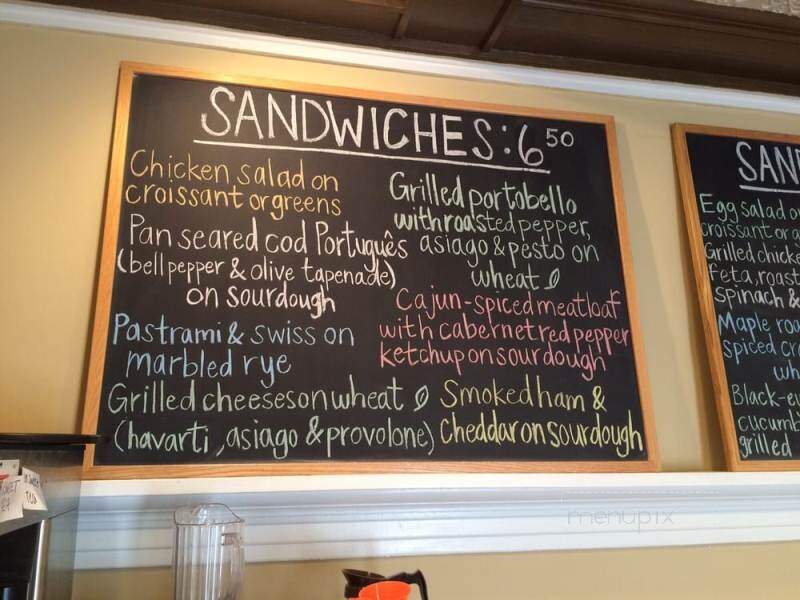 SANDWICHES: 6 50
Chicken salad on
croissant or greens
Pan seared cod Português
(bell pepper & olive tapenade)
on sourdough
Pastrami & swiss on
marbled rye
Grilled cheeses on wheat
(havarti, asiago & provolone)
Grilled portobello
with roasted pepper,
asiago & pesto on
wheat
Cajun-spiced meatloaf
with cabernet red pepper
ketchup on sourdough
Smoked ham &
Cheddar on sourdough
Egg salad
croissant or
Grilled
feta, roast
spinach &
Maple
spiced
Black-
grilled
menupix